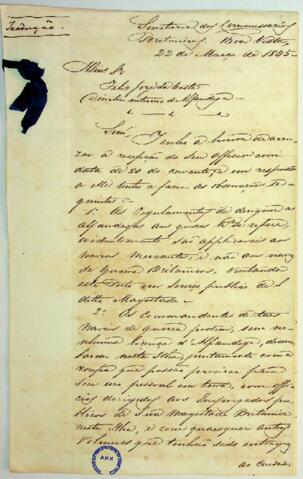 Tradução.
Secretaria dos Commissarios
Britanicos, Boa Vista,
22 de Março de 1845.
Illmo Sr.
Felix José da Costa
Director interino de Alfandega
Senr. Tenho a honra de accu-
zar a recepção do Seu officio com
data de 20 do corrente, e em resposta
a elle tenho a fazer as observações se-
guintes:
1.º Os Regulamentos de
Alfandegas aos quaes V. S. se refere,
evidentemente são applicaveis aos
navios Mercantes, e não aos navios
de Guerra Britanicos, visitando
este Porto em serviço publico de S.
ditta Magestade.
2.º Os Commandantes de taes
Navios de guerra podem, sem ne-
nhuma licença d'Alfandega, desem-
barcar nesta Ilha, juntamente com a
roupa que possão precisar para o
Seu uso pessoal em terra, com offi-
cios dirigidos aos Empregados pu-
blicos de Sua Magestade Britanica
nesta Ilha, e com quaesquer outros
Volumes que tenhão sido entregues
ao Cuidado
AHN